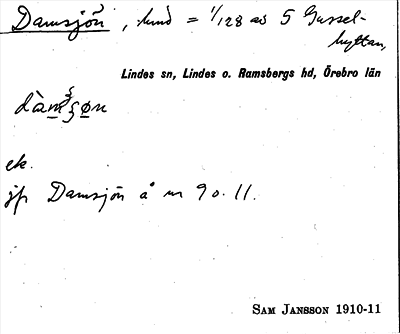 Damsjön, hmd = 1/128 av 5 Gussel-
hyttan,
Lindes sn, Lindes o. Ramsbergs hd, Örebro län
ek.
jfr Damsjön å nr 9 o. 11.
SAM JANSSON 1910-11